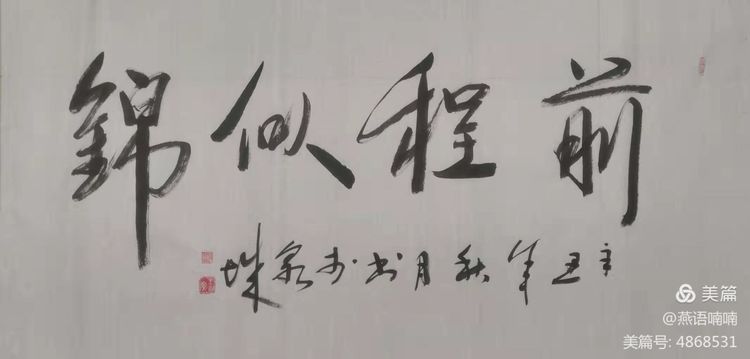 前程似錦
辛丑年秋月书于泉城
美篇
@燕语喃喃
美篇号: 4868531